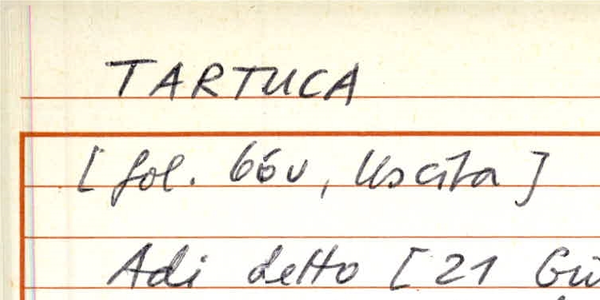 TARTUCA
[fol. 66v, Uscita]
Adi detto [21 Giu